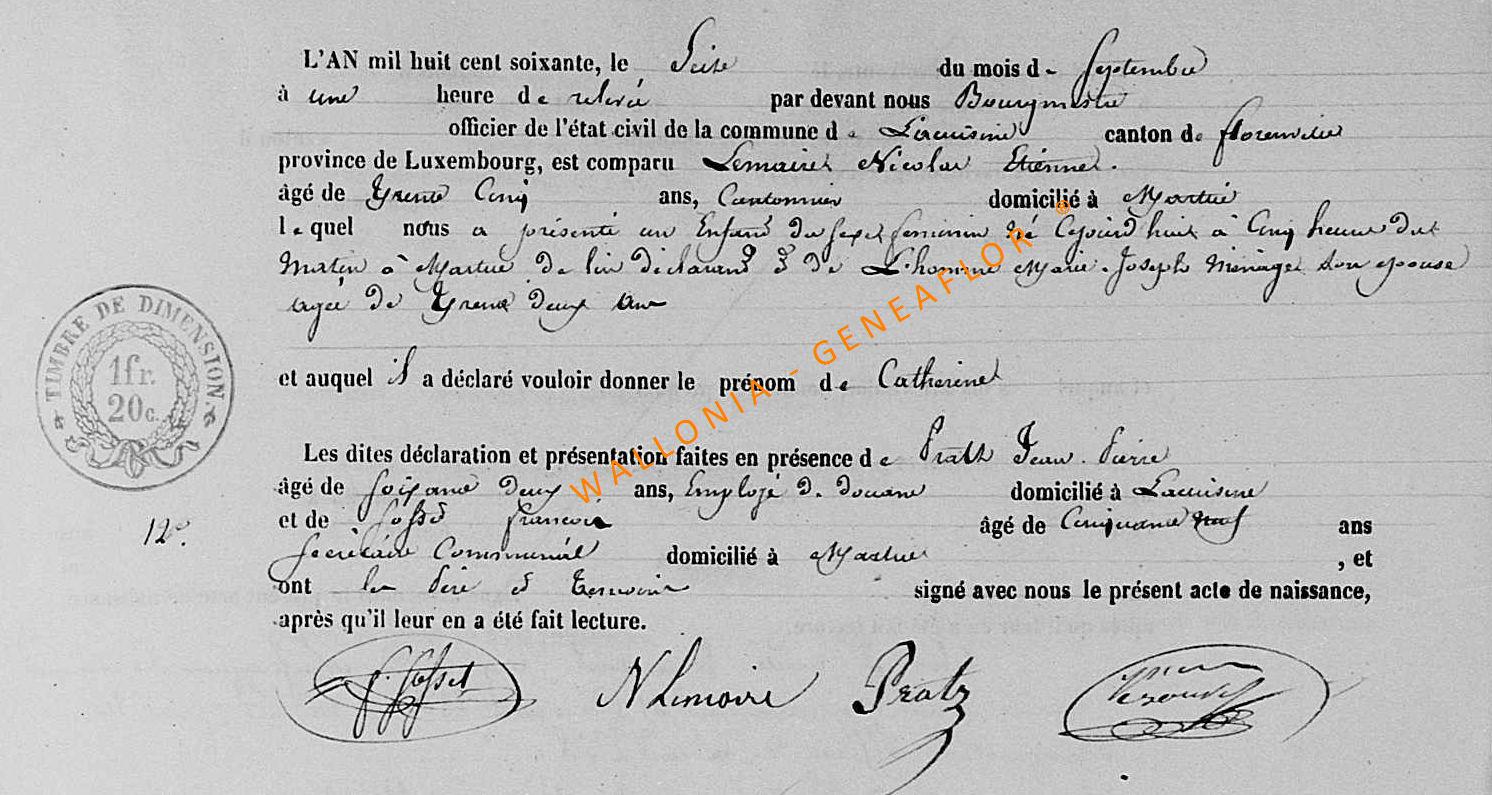 L'AN mil huit cent soixante, le Seize du mois de Septembre
à une heure de relevée par devant nous Bourgmestre
officier de l'état civil de la commune de Lacuisine canton de florenville
province de Luxembourg, est comparu Lemaire Nicolas Etienne.
âgé de Trente Cinq ans, Cantonnier domicilié à Martué
lequel nous a présenté un Enfant du sexe feminin né Cejourd'huit à Cinq heure du
Matin à Martué de lui déclarant & de L'homme Marie-Joseph Ménagere son epouse
agée de Trente deux ans
et auquel il a déclaré vouloir donner le prénom de Catherine
Les dites déclaration et présentation faites en présence de Prath Jean-Pierre
âgé de soixante Deux ans, Employé de Douane domicilié à Lacuisine
et de François âgé de Cinquante neuf ans
Secrétaire Communal domicilié à Martué , et
ont les Père et Temoins signé avec nous le présent acte de naissance,
après qu'il leur en a été fait lecture.
NLemaire Pratz
TIMBRE DE DIMENSION.
1 fr.
20 c.
12e.
WALLONIA - GENEAFLOR ®